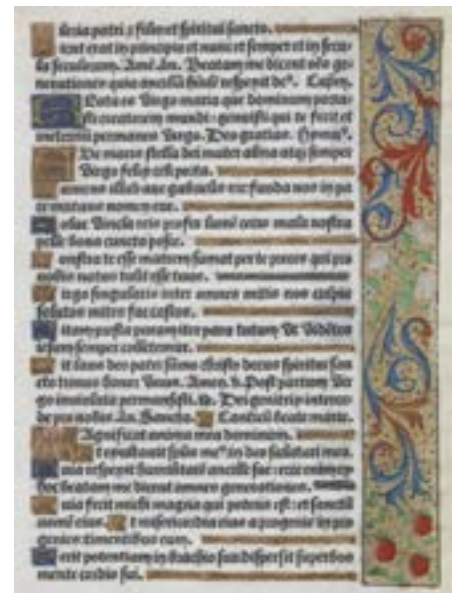 loria patri z filio et spiritui sancto.
icut erat in principio et nunc et semper et in secu-
la seculorum. Amē. añ. Beatam me dicent oēs ge-
nerationes quia ancillā humilē respexit de⁹. Capitm.
Beata es Virgo maria que dominum porta-
sti creatorem mundi: genuisti qui te fecit et
in eternū permanes Virgo. Deo gratias. Hymn⁹.
Ave maris stella dei mater alma atqz semper
Virgo felix celi porta.
umens illud ave gabrielis ore funda nos in pa
ce mutans nomen eve.
olve Vincla reis profer lumē cecis mala nostra
pelle bona cuncta posce.
onstra te esse matrem sumat per te preces qui pro
nobis natus tulit esse tuus.
irgo singularis inter omnes mitis nos culpis
solutos mites fac castos.
itam presta puram iter para tutum Vt Videntes
iesum semper colletemur.
it laus deo patri summo christo decus spiritui san
cto trinus honor Vnus. Amen. V. Post partum Vir
go inviolata permansisti. R. Dei genitrix interce-
de pro nobis. añ. Sancta. Canticū beate marie.
Agnificat anima mea dominum.
t exultavit spūs me⁹: in deo salutari meo.
uia respexit humilitatē ancille sue: ecce enim ex
hoc beatam me dicent omnes generationes.
uia fecit michi magna qui potens est: et sanctū
nomē eius. t misericordia eius a progenie in pro
genies timentibus eum.
ecit potentiam in brachio suo dispersit superbos
mente cordis sui.